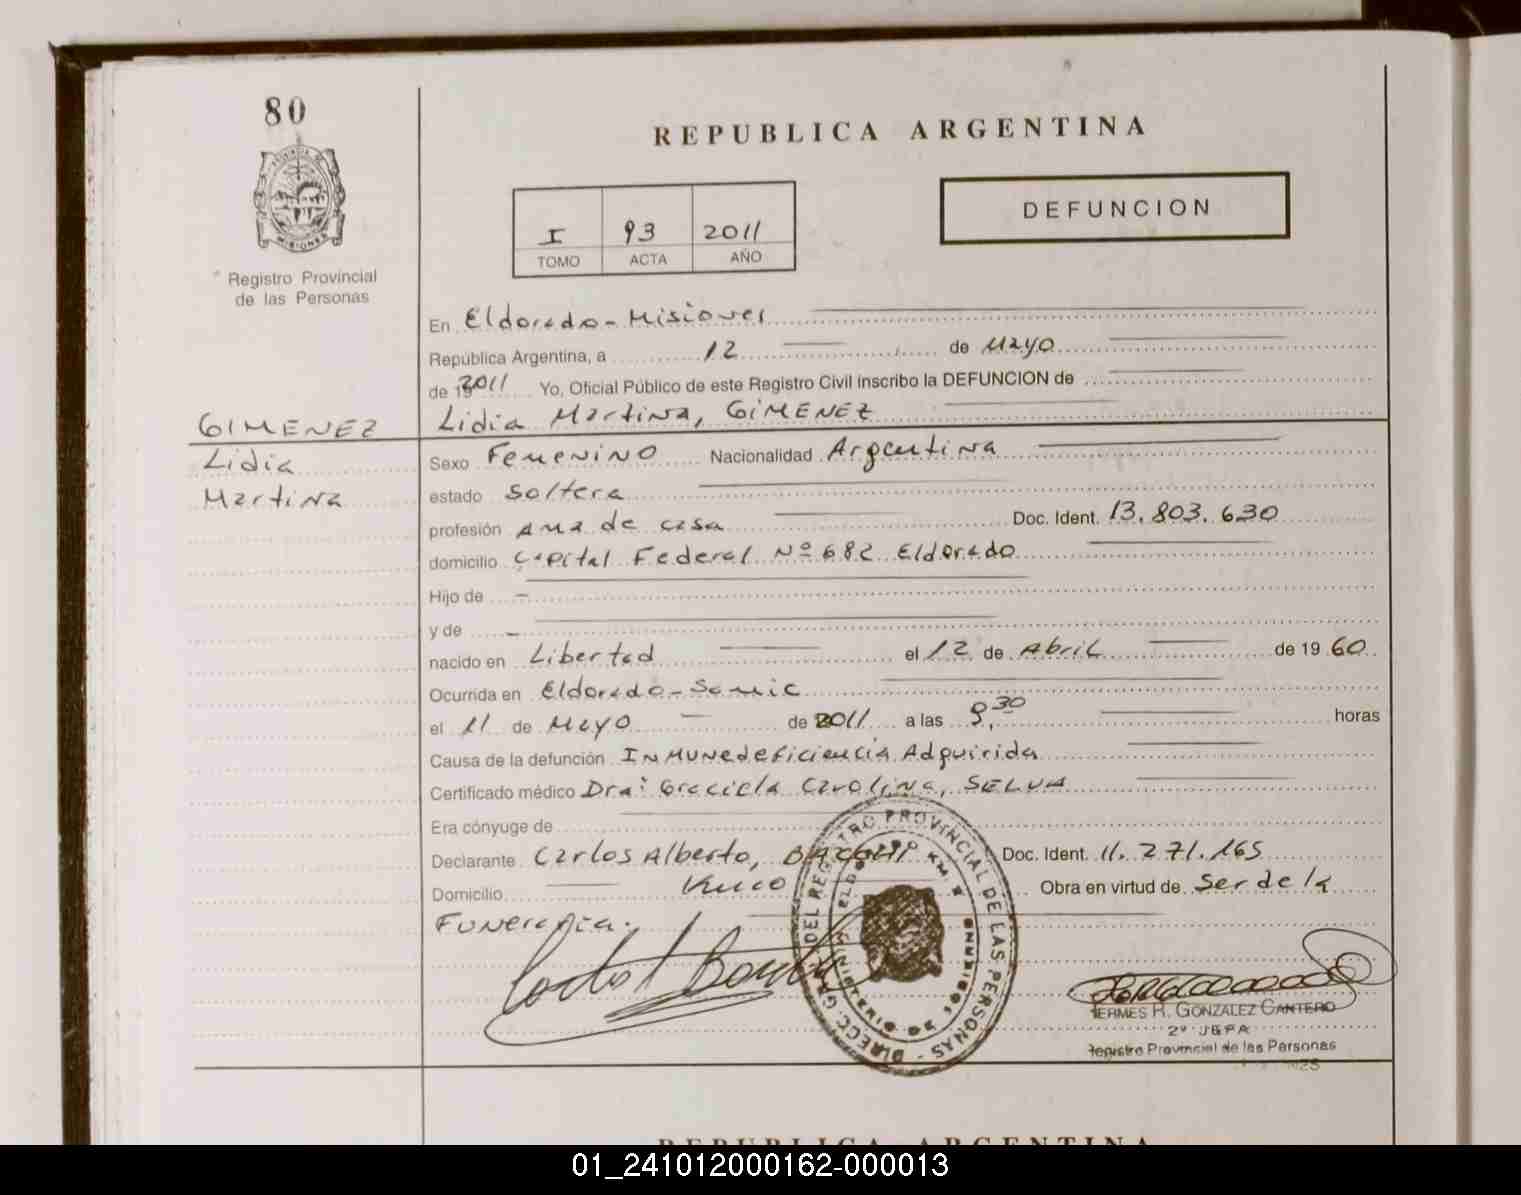 80
PROVINCIA DE
MISIONES
Registro Provincial
de las Personas
REPUBLICA ARGENTINA
I 93 2011
TOMO ACTA AÑO
DEFUNCION
En Eldorado - Misiones
República Argentina, a 12 de Mayo
de 19 2011 Yo, Oficial Público de este Registro Civil inscribo la DEFUNCION de
Lidia Martina, GIMENEZ
GIMENEZ
Lidia
Martina
Sexo Femenino Nacionalidad Argentina
estado Soltera
profesión Ama de casa Doc. Ident. 13.803.630
domicilio Capital Federal Nº 682 Eldorado
Hijo de -
y de -
nacido en Libertad el 12 de Abril de 19 60
Ocurrida en Eldorado - Samic
el 11 de Mayo de 2011 a las 9,30 horas
Causa de la defunción Inmunedeficiencia Adquirida
Certificado médico Dra: Graciela Carolina, SELVA
Era cónyuge de
Declarante Carlos Alberto, Doc. Ident. 11.271.165
Domicilio Obra en virtud de Ser de la
Funeraria.
DIRECC. GRAL DEL REGISTRO PROVINCIAL DE LAS PERSONAS -
HERMES R. GONZALEZ CANTERO
2º JEFA
Registro Provincial de las Personas
REPUBLICA ARGENTINA
01_241012000162-000013